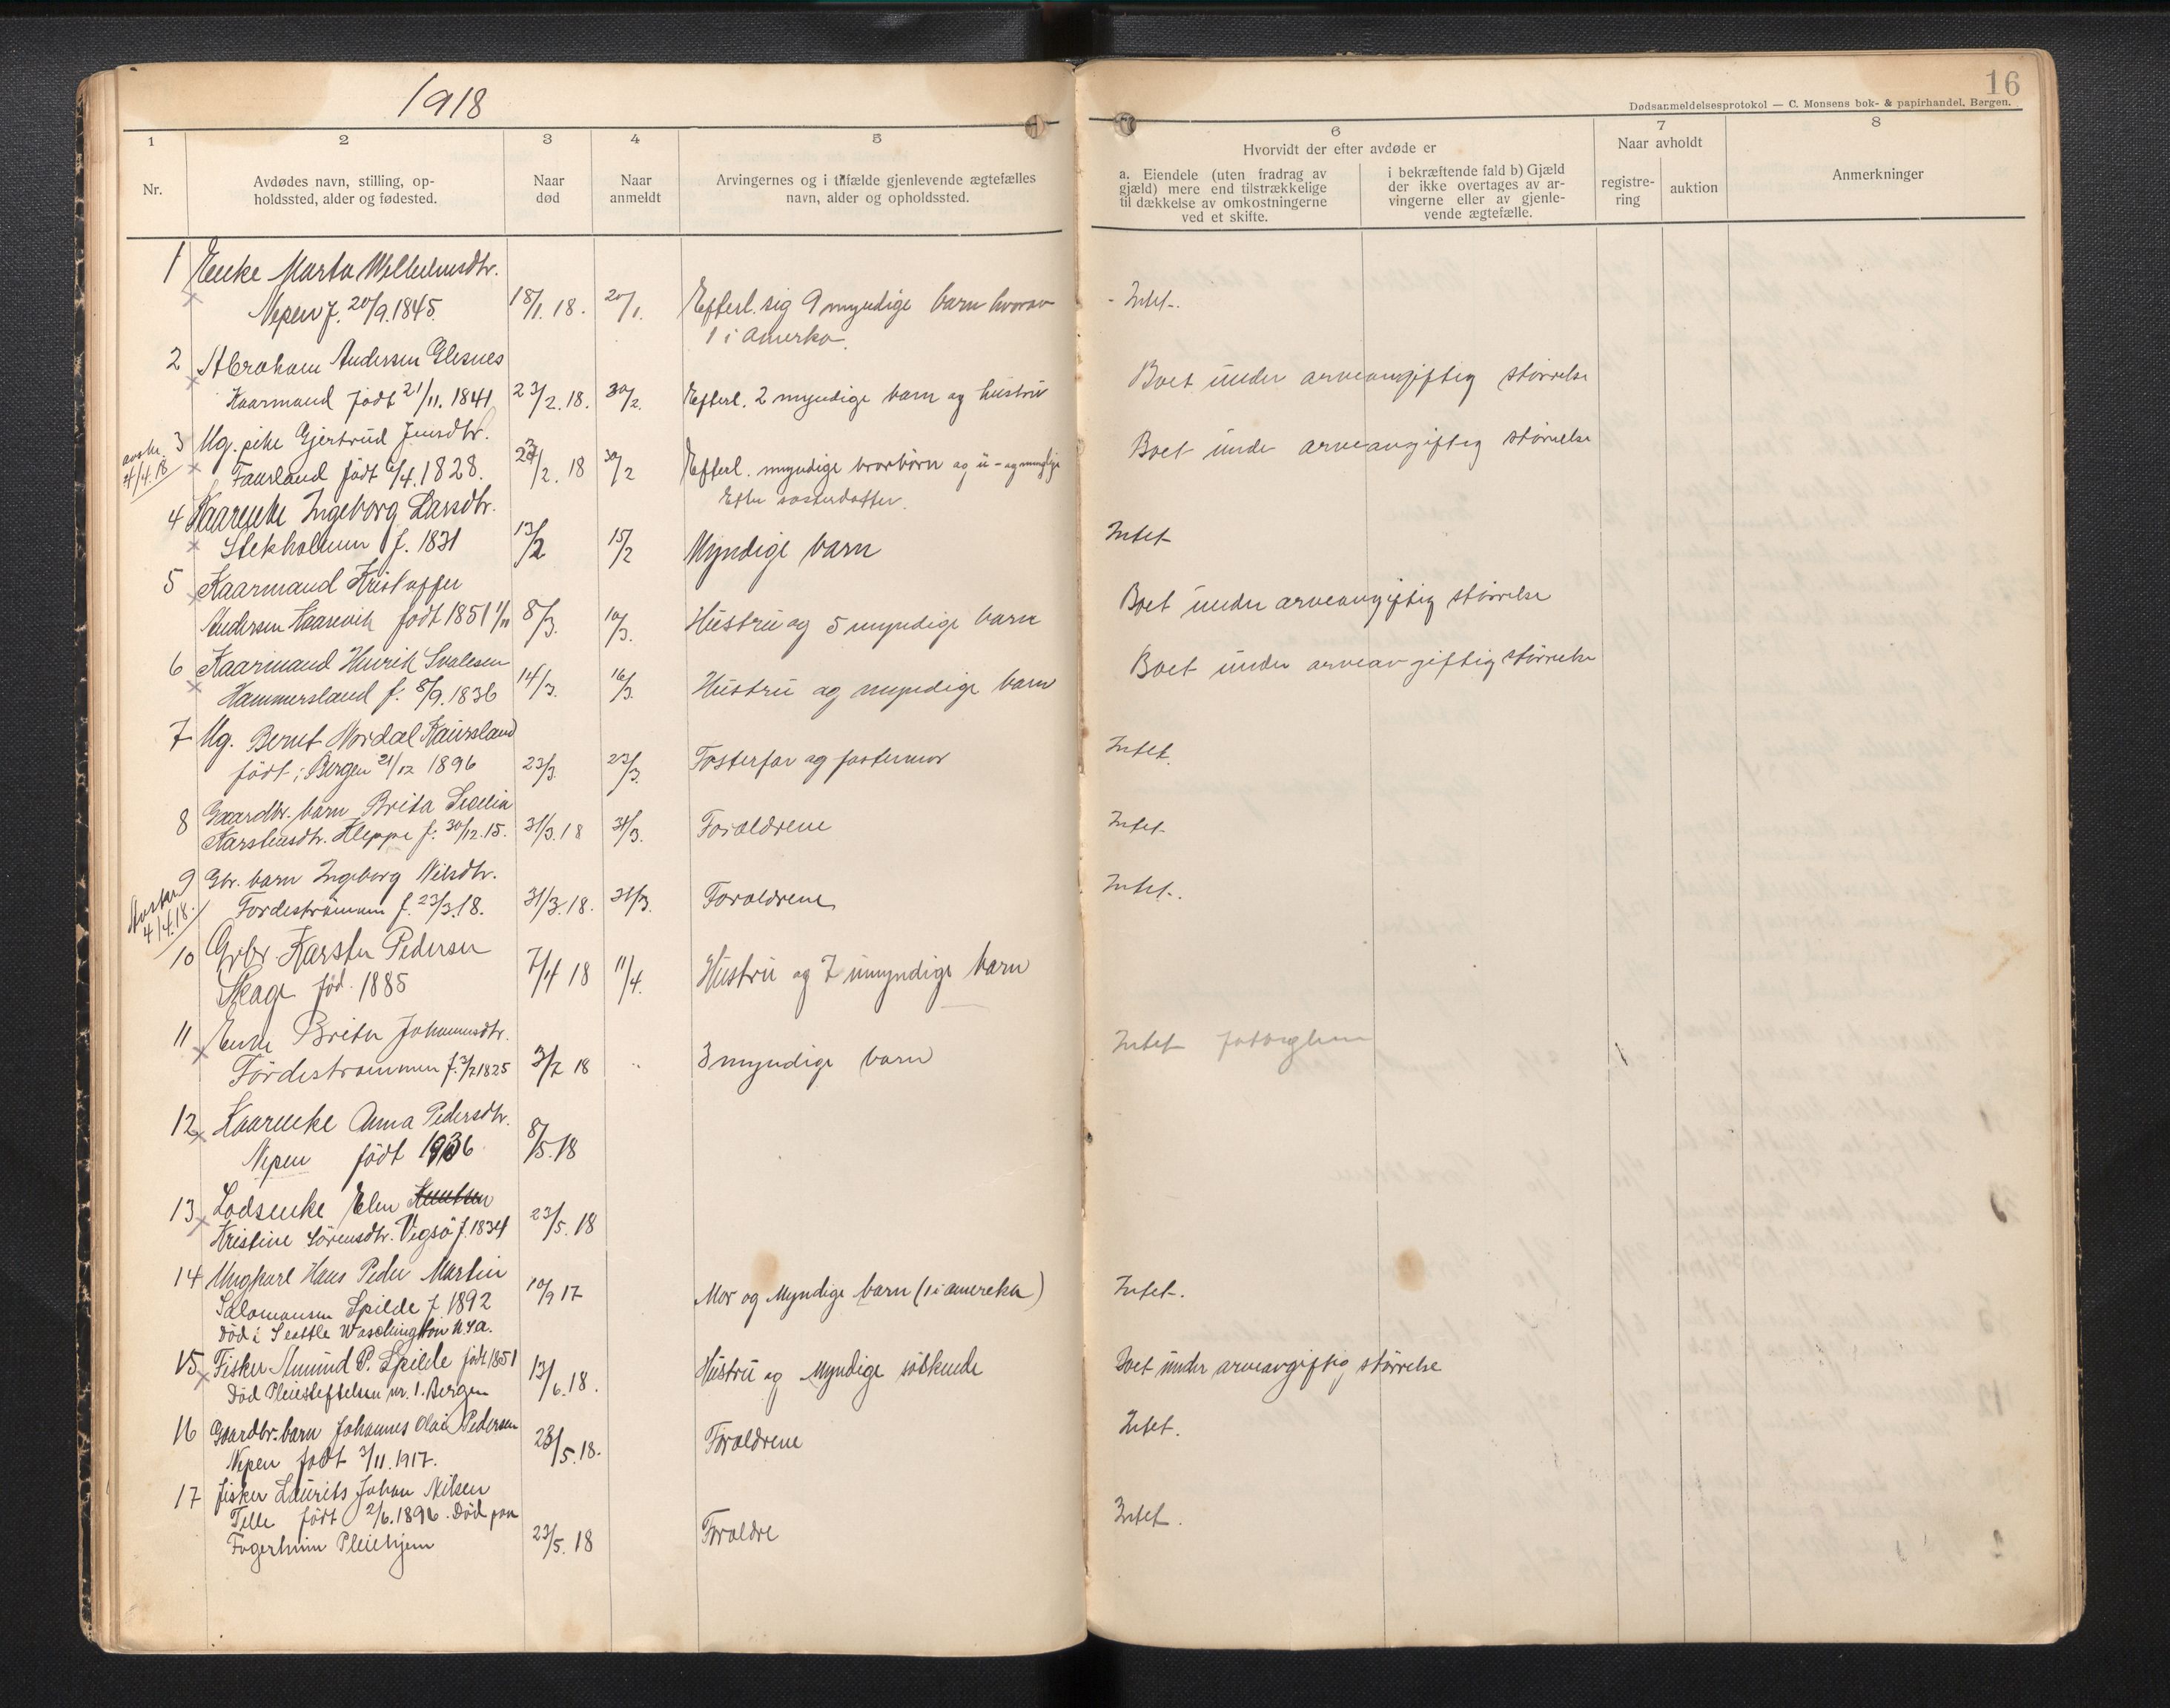 1918
16
Dødsanmeldelsesprotokol — C. Monsens bok- & papirhandel, Bergen.
1 2 3 4 5 6 7 8
Nr.
Avdødes navn, stilling, op-
holdssted, alder og fødested.
Naar
død
Naar
anmeldt
Arvingernes og i tilfælde gjenlevende ægtefælles
navn, alder og opholdssted.
Hvorvidt der efter avdøde er
a. Eiendele (uten fradrag av
gjæld) mere end tilstrækkelige
til dækkelse av omkostningerne
ved et skifte.
i bekræftende fald b) Gjæld
der ikke overtages av ar-
vingerne eller av gjenle-
vende ægtefælle.
Naar avholdt
registre-
ring
auktion
Anmerkninger
1 Enke Marta Willumsdtr.
Nepen f. 20/9.1845 18/1. 18. 20/1. Efterl. sig 9 myndige barn hvorav - Intet.
1 i Amerka
2 Abraham Andersen Glesnes
Kaarmand født 21/11. 1841 23/2. 18. 30/2. Efterl. 2 myndige barn og hustru Boet under arveavgiftig størrelse
avskr. 3 Ug. pike Gjertrud Jensdtr.
4/4.18 Faursland født 6/4.1828. 2/2. 18 30/2 Efterl. myndige brorbörn og u-og myndige Boet under arveavgiftig størrelse
Efter søsterdatter.
4 Kaarenke Ingeborg Larsdtr.
Stekholmen f. 1831 13/2 15/2 Myndige barn Intet
5 Kaarmand Kristoffer
Andersen Kaarevik født 1851 1/11 8/3. 10/3. Hustru og 5 myndige barn Boet under arveavgiftig størrelse
6 Kaarmand Henrik Svalesen
Hammersland f. 8/9.1836 14/3. 16/3. Hustru og myndige barn Boet under arveavgiftig størrelse
7 Ug. Bernt Nordal Kaursland
født i Bergen 21/12 1896 23/3 23/3. Fosterfar og fostermor Intet.
8 Gaardbr. barn Brita Secelia
Karstensdtr. Kleppe f. 30/12.15. 31/3.18 31/3. Foraldrene Intet
9 Gbr. barn Ingeborg Nilsdtr.
4/4.18. Fordeströmmen f. 23/3.18. 31/3.18. 31/3. Foraldrene Intet.
10 Grbr Karsten Pedersen
Skage fød. 1885 7/4 18 11/4. Hustru og 7 umyndige barn
11 Enke Brita Johannesdtr.
Fördeströmmen f. 3/7 1825 3/2 18 .. 3 myndige barn Intet
12 Kaarenke Anna Pedersdtr.
Nepen født 1936 8/5.18
13 Lodsenke Elen Knutsen
Kristine Sörensdtr. Vigsö f. 1834 23/5. 18
14 Ungkarl Hans Peder Martin
Salomonsen Spilde f 1892 10/9 17 Mor og Myndige barn (1 i amereka) Intet.
Död i Seattle Waschington U.S.a.
15 Fisker Amund P. Spilde født 1851
Död Pleiesteftelsen nr. 1. Bergen 13/6.18. Hustru og Myndige söskende Boet under arveavgiftig størrelse
16 Gaardbr. barn Johannes Olai Pedersen
Nepen født 3/11.1917. 23/5.18. Foraldrene Intet.
17 fisker Laurits Johan Nilsen
Telle født 2/6.1896. Död paa
Fagerheim Pleiehjem 23/5. 18 Foraldre Intet.